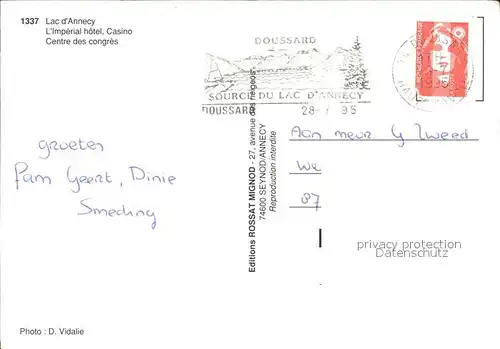 1337 Lac d'Annecy
L'Impérial hôtel, Casino
Centre des congrès
DOUSSARD
SOURCE DU LAC D'ANNECY
DOUSSARD 28-7 95
groeten
Pam Geert, Dinie
Smeding
Editions ROSSAT MIGNOD - 27, avenue des neiges
74600 SEYNOD/ANNECY
Reproduction interdite
Aan meur. G Tweed
We
87
privacy protection
Datenschutz
Photo : D. Vidalie